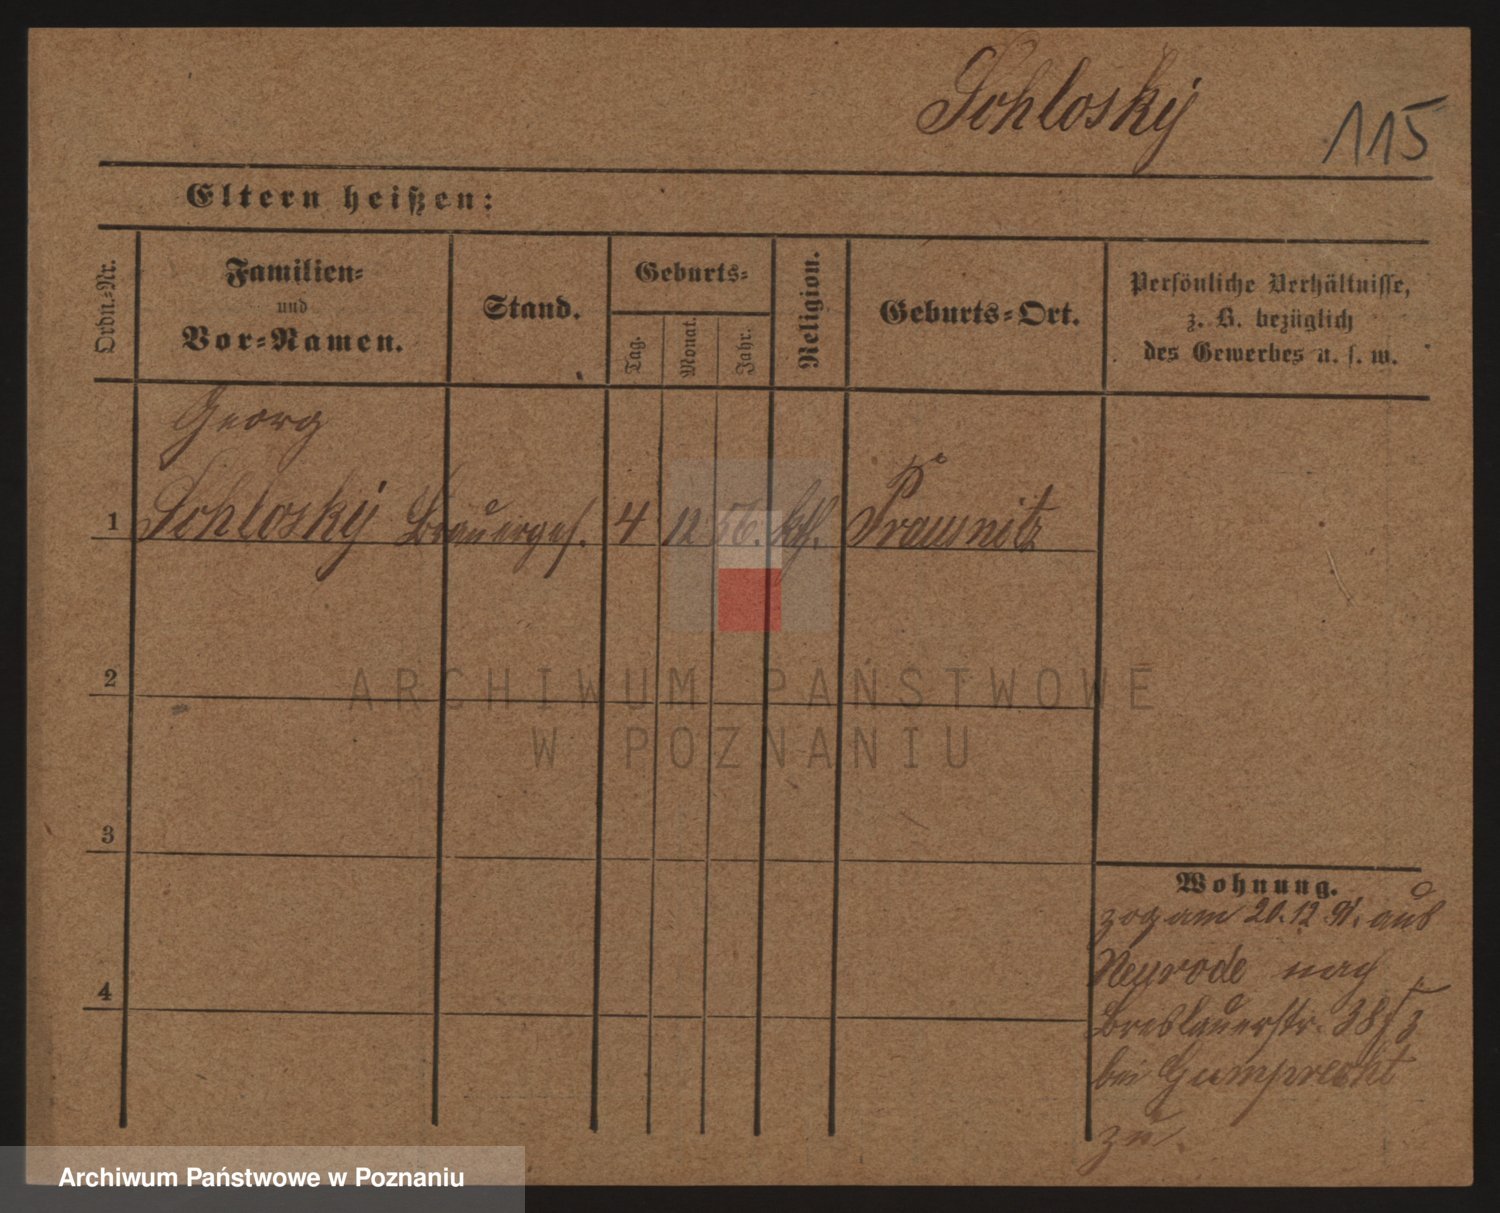 Schlosky
115
Eltern heißen:
Ordn.-Nr.
Familien-
und
Vor-Namen.
Stand.
Geburts-
Tag.
Monat.
Jahr.
Religion.
Geburts-Ort.
Persönliche Verhältnisse,
z. B. bezüglich
des Gewerbes u. s. w.
Georg
1 Schlosky Brauerges. 4 12 56. kth. Prausnitz
2
3
4
Wohnung.
zog am 20.12.91. aus
Neurode nach
Breslauerstr. 38
bei Gumprecht
zu.
ARCHIWUM PAŃSTWOWE
W POZNANIU
Archiwum Państwowe w Poznaniu